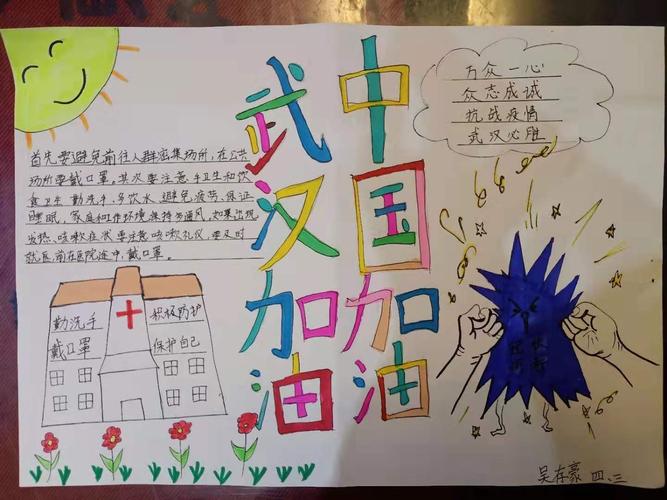 首先要避免前往人群密集场所,在公共
场所要戴口罩。其次要注意手卫生和饮
食卫生 勤洗手、多饮水、避免疲劳、保证
睡眠,家庭和工作环境保持多通风,如果出现
发热、咳嗽症状要注意咳嗽礼仪,要及时
就医,前在医院途中,戴口罩。
武汉加油
中国加油
万众一心
众志成诚
抗战疫情
武汉必胜
勤洗手
戴口罩
积极防护
保护自己
吴存豪 四、三